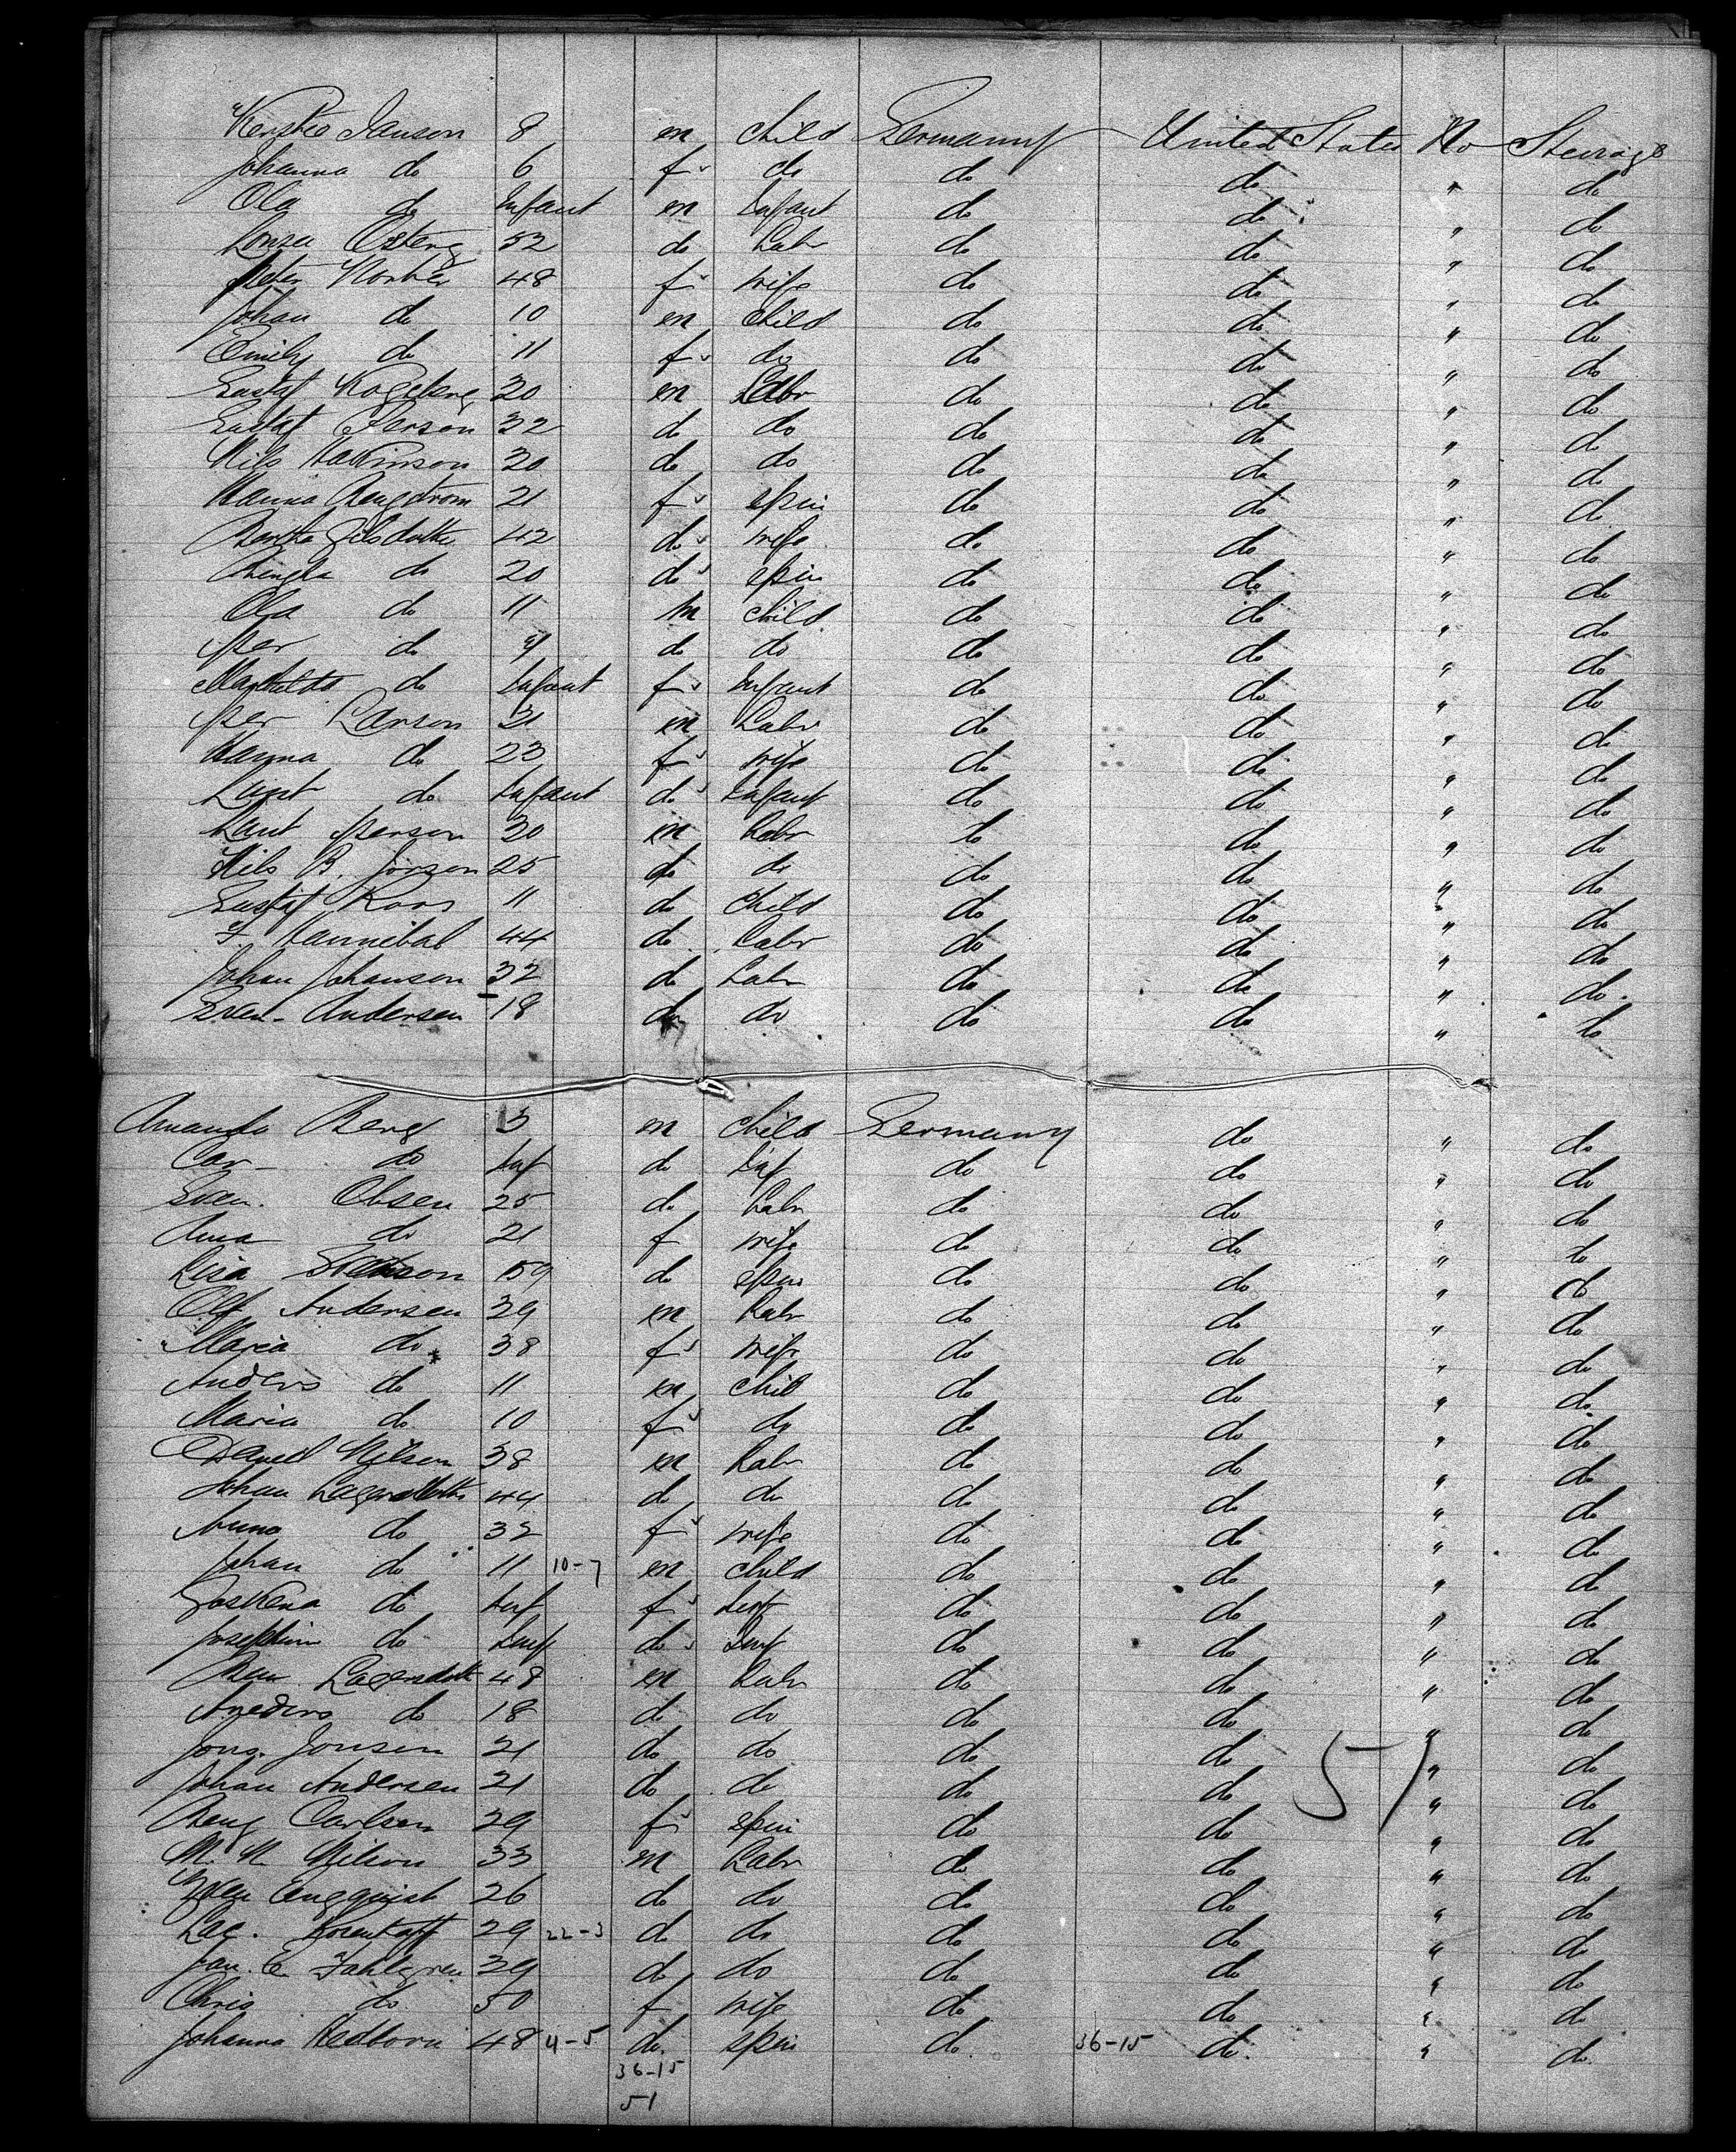 Janson 8 m child Germany United States No Steirage
Johanna do 6 f do do do " do
Ola do Infant m Infant do do " do
Osterg 52 do Labr do do " do
48 f wife do do " do
Johan do 10 m child do do " do
Emily do 11 f do do do " do
Gustaf 20 m Labr do do " do
Gustaf Person 32 do do do do " do
Nils Hakinson 30 do do do do " do
Hanna Bengstrom 21 f spin do do " do
Bertha 42 do wife do do " do
Bengta do 20 do spin do do " do
Ola do 11 m child do do " do
Per do 9 do do do do " do
Mathilda do Infant f Infant do do " do
Per Larson 31 m Labr do do " do
Hanna do 23 f wife do do " do
do Infant do Infant do do " do
Person 30 m Labr do do " do
Nils B. Jonson 25 do do do do " do
Gustaf Roos 11 do child do do " do
F Hannibal 44 do Labr do do " do
Johan Johanson 32 do Labr do do " do
Sven Andersen 18 do do do do " do
Amanda Berg 3 m child Germany do " do
Car do Inf do Inf do do " do
Sven. Olsen 25 do Labr do do " do
Anna do 21 f wife do do " do
Lisa 59 do spin do do " do
Olf Andersen 39 m Labr do do " do
Maria do 38 f wife do do " do
Anders do 11 m chil do do " do
Maria do 10 f do do do " do
Daniel Nilson 38 m Labr do do " do
Johan 44 do do do do " do
Anna do 32 f wife do do " do
Johan do 11 10-7 m child do do " do
do Inf f Inf do do " do
Josephin do Inf do Inf do do " do
48 m Labr do do " do
do 18 do do do do " do
Jons. Jonsen 21 do do do do " do
51
Johan Andersen 21 do do do do " do
Beng Carlsen 29 f spin do do " do
M. N. Nilson 33 m Labr do do " do
Sven Engquist 26 do do do do " do
29 22-3 do do do do " do
Jan. C. Fahlgren 39 do do do do " do
Chris do 50 f wife do do " do
Johanna Hedborn 48 4-5 do. spin do. 36-15 do. " do.
36-15
51